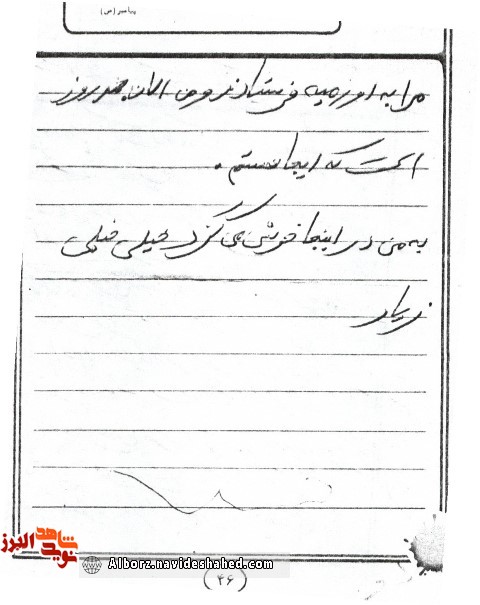 پیامبر (ص)
مرا به اورمیه فرستادند ومن الان چند روز
است که اینجا هستم .
به من در اینجا خوش می گذرد خیلی خیلی
زیاد
نوید شاهد البرز
Alborz.navideshahed.com
(۴۶)